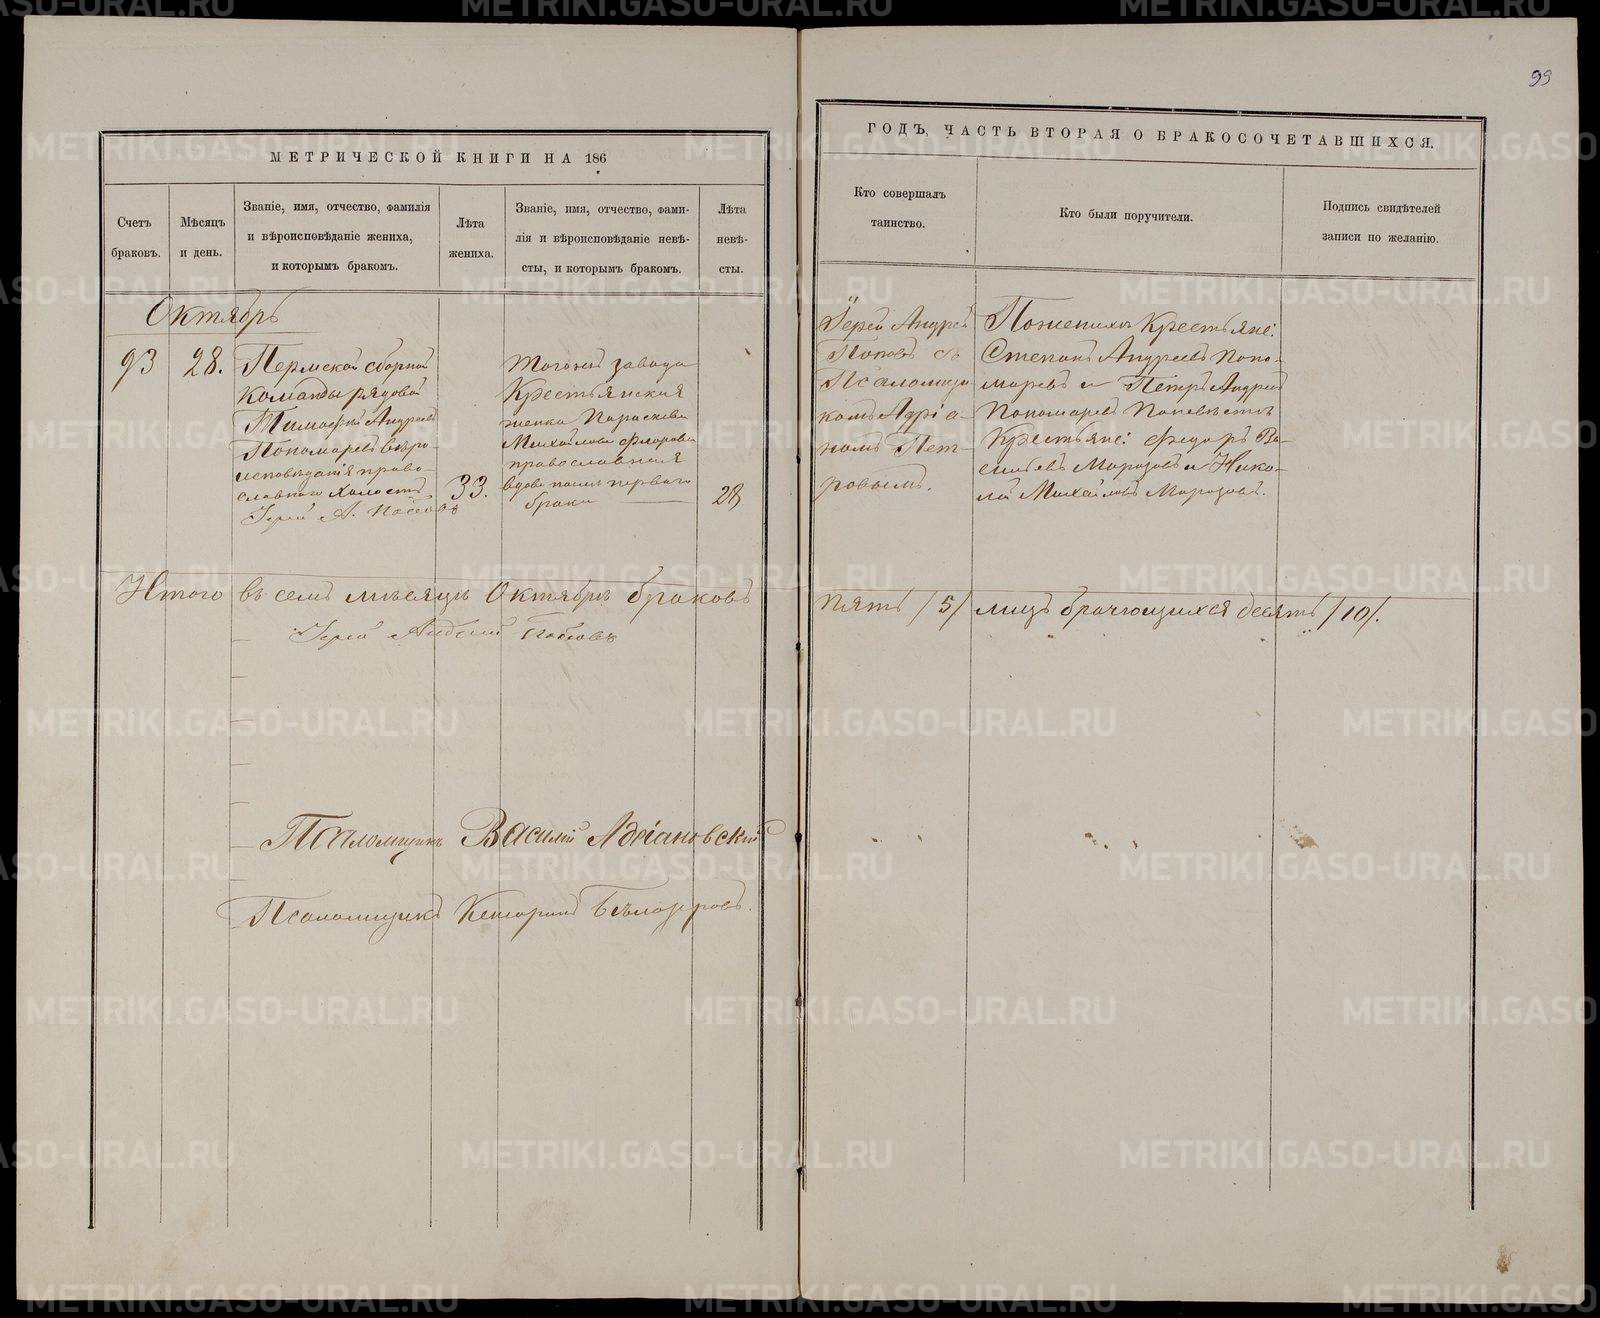 99
МЕТРИЧЕСКОЙ КНИГИ НА 186
ГОДЪ, ЧАСТЬ ВТОРАЯ О БРАКОСОЧЕТАВШИХСЯ.
Счетъ
браковъ.
Мѣсяцъ
и день.
Званіе, имя, отчество, фамилія
и вѣроисповѣданіе жениха,
и которымъ бракомъ.
Лѣта
жениха.
Званіе, имя, отчество, фами-
лія и вѣроисповѣданіе невѣ-
сты, и которымъ бракомъ.
Лѣта
невѣ-
сты.
Кто совершалъ
таинство.
Кто были поручители.
Подпись свидѣтелей
записи по желанію.
Октябрь
93
28.
Пермской сборной
команды рядовой
Тимофей Андреевъ
Пономаревъ вѣро-
исповѣданія право-
славнаго холостъ
Іерей А. Поповъ
33.
Тогожъ завода
Крестьянская
женка Параскева
Михайлова
православная
вдова послѣ перваго
брака
28
Іерей Андрей
Поповъ съ
Псаломщи-
комъ Адріа-
номъ Пет-
ровымъ.
Поженихѣ Крестьяне:
Степанъ Андреевъ Поно-
маревъ и Петръ Андреевъ
Пономаревъ Поневѣстѣ
Крестьяне: Федоръ Ва-
сильевъ Морозовъ и Нико-
лай Михайловъ Морозовъ.
Итого въ семъ мѣсяцѣ Октябрѣ браковъ
пять /5/ лицъ брачющихся десять /10/.
Іерей Андрей Поповъ
Псаломщикъ Василій Адріановскій
Псаломщикъ Бѣлозеровъ.
METRIKI.GASO-URAL.RU